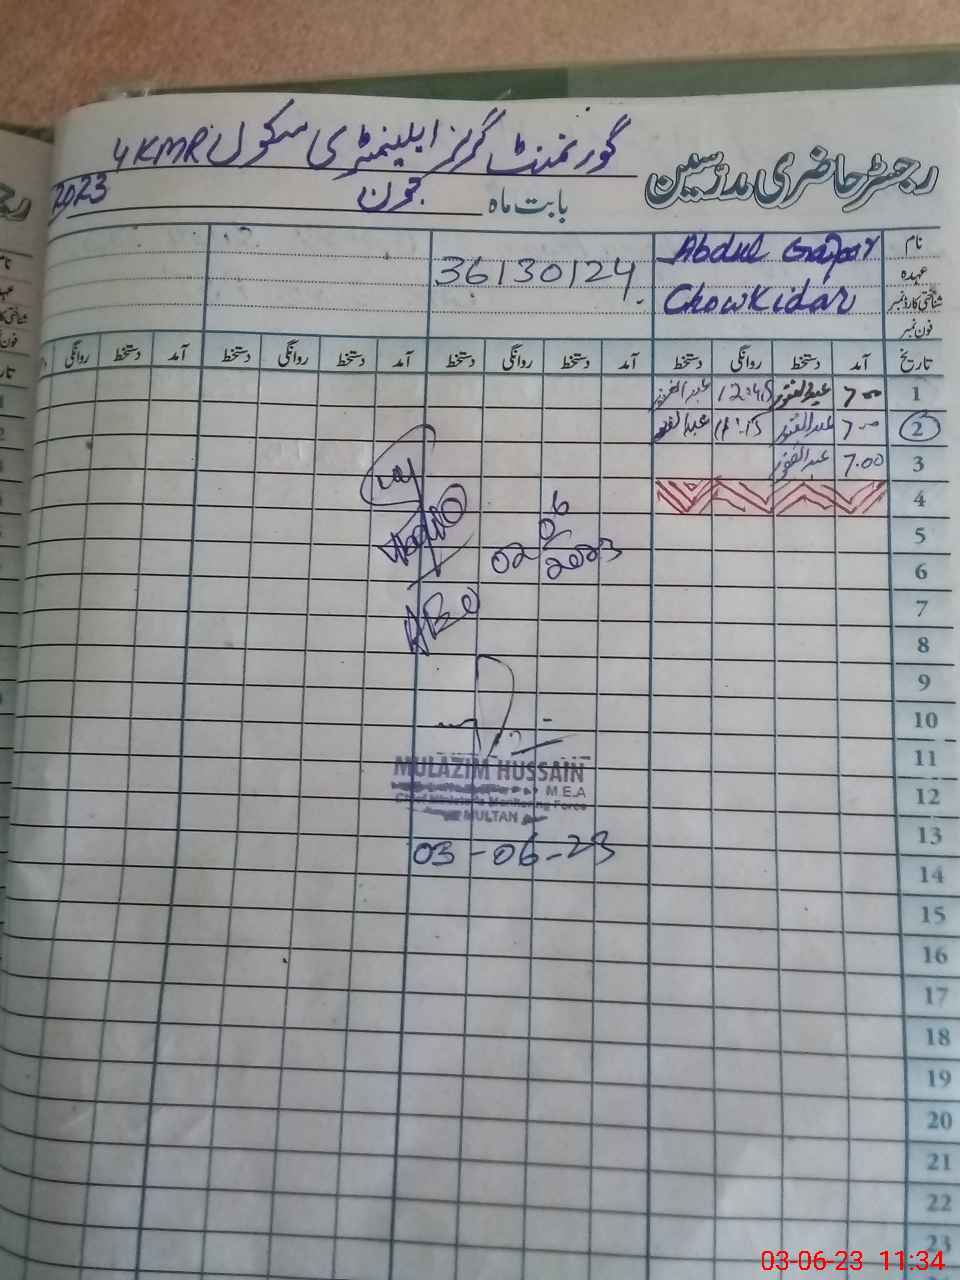 گورنمنٹ گرلز ایلیمنٹری سکول 4KMR
رجسٹر حاضری مدرسین
بابت ماہ جون 2023
نام Abdul Gafoor
عہدہ 36130124
شناختی کارڈ نمبر Chowkidar
فون نمبر
تاریخ آمد دستخط روانگی دستخط آمد دستخط روانگی دستخط آمد دستخط روانگی دستخط آمد دستخط روانگی
1 7-00 عبدالغفور 12:45 عبدالغفور
2 7-00 عبدالغفور 11:15 عبدالغفور
3 7.00 عبدالغفور
4
5
02/06/2023
6
7
AEO
8
9
10
11
MULAZIM HUSSAIN
M.E.A
12
Chief Minister's Monitoring Force
MULTAN
13
03-06-23
14
15
16
17
18
19
20
21
22
23
03-06-23 11:34